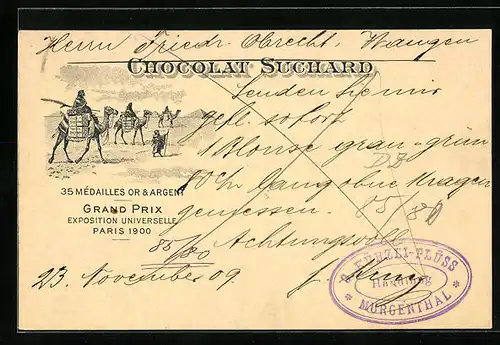 Herrn Friedr. Obrecht. Wangen
CHOCOLAT SUCHARD
Senden Sie mir
gefl. sofort
1 Blouse grau-grün
lang ohne Kragen
gemessen.
85/80
Achtungsvoll
35 MÉDAILLES OR & ARGENT
GRAND PRIX
EXPOSITION UNIVERSELLE
PARIS 1900
85/80
23. November 09.
KÜNZLI-PLÜSS
Handlung
* MURGENTHAL *